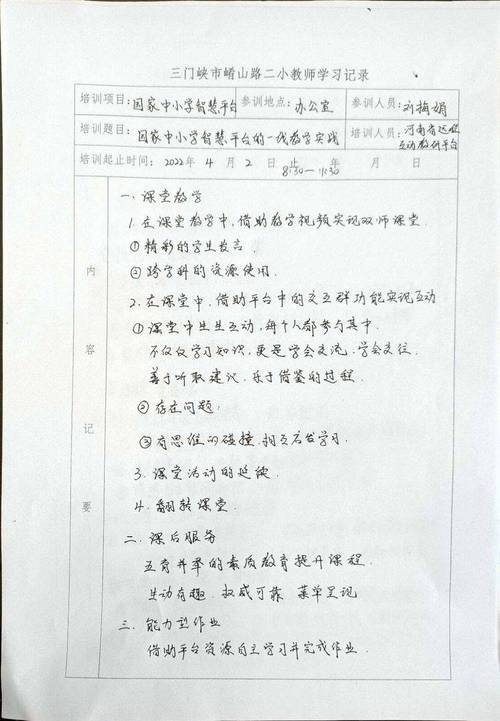 三门峡市崤山路二小教师学习记录
培训项目：国家中小学智慧平台 参训地点：办公室 参训人员 刘梅娟
培训题目：国家中小学智慧平台的一线教学实践 培训人员：河南省远程互动教研平台
培训起止时间：2022年 4 月 2 日 止 年 月 日
8:30—11:30
内容记要
一、课堂教学
1. 在课堂教学中，借助教学视频实现双师课堂.
①精彩的学生发言.
②跨学科的资源使用.
2. 在课堂中，借助平台中的交互群功能实现互动
①课堂中生生互动，每个人都参与其中.
不仅仅学习知识，更是学会交流，学会交往，
善于听取建议，乐于借鉴的过程.
②存在问题：
③有思维的碰撞，相互启发学习.
3. 课堂活动的延伸.
4. 翻转课堂.
二、课后服务
五育并举的素质教育提升课程.
生动有趣 权威可靠 菜单呈现
三、能力型作业
借助平台资源自主学习并完成作业.